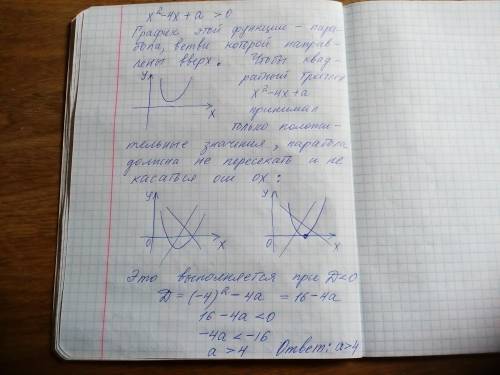 x²-4x+a >0
График этой функции - пара-
бола, ветви которой направ-
лены вверх. Чтобы квад-
ратный трёхчлен
y
x²-4x+a
принимал
x
только положи-
тельные значения, парабола
должна не пересекать и не
касаться оси ox:
y
y
0
x
0
x
Это выполняется при D<0
D = (-4)² - 4a = 16-4a
16-4a <0
-4a < -16
a > 4 Ответ: a>4